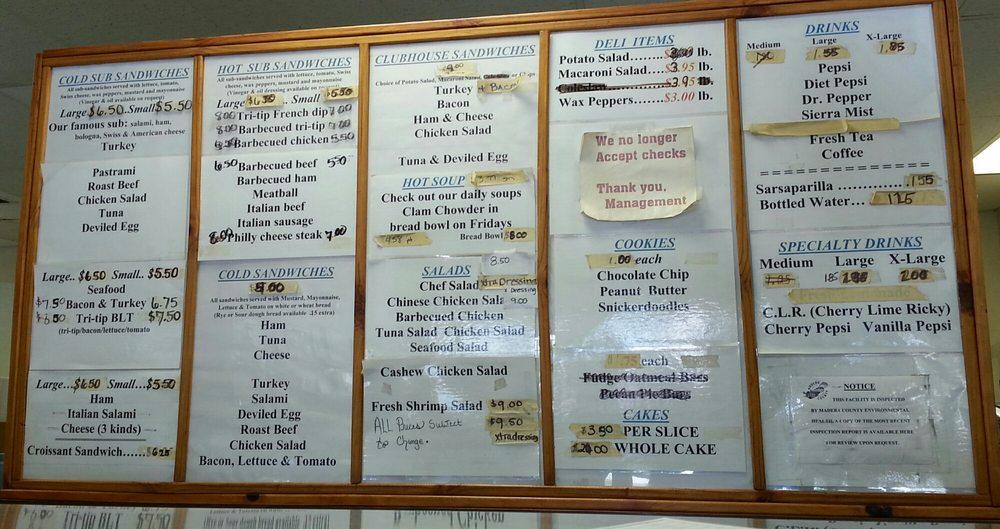 COLD SUB SANDWICHES
All sub-sandwiches served with lettuce, tomato,
Swiss cheese, wax peppers, mustard and mayonnaise
(Vinegar & oil available on request)
Large $6.50 Small $5.50
Our famous sub: salami, ham,
bologna, Swiss & American cheese
Turkey
Pastrami
Roast Beef
Chicken Salad
Tuna
Deviled Egg
Large.. $6.50 Small.. $5.50
Seafood
$7.50 Bacon & Turkey 6.75
Tri-tip BLT $7.50
(tri-tip/bacon/lettuce/tomato)
Large...$6.50 Small...$5.50
Ham
Italian Salami
Cheese (3 kinds)
Croissant Sandwich......$6.25
HOT SUB SANDWICHES
All sub-sandwiches served with lettuce, tomato, Swiss
cheese, wax peppers, mustard and mayonnaise
(Vinegar & oil dressing available on request)
Large $6.50 .. Small 5.50
8.00 Tri-tip French dip 7.00
8.00 Barbecued tri-tip 7.00
Barbecued chicken 5.50
6.50 Barbecued beef 5.50
Barbecued ham
Meatball
Italian beef
Italian sausage
8.00 Philly cheese steak 7.00
COLD SANDWICHES
All sandwiches served with Mustard, Mayonnaise,
Lettuce & Tomato on white or wheat bread
(Rye or Sour dough bread available .15 extra)
Ham
Tuna
Cheese
Turkey
Salami
Deviled Egg
Roast Beef
Chicken Salad
Bacon, Lettuce & Tomato
CLUBHOUSE SANDWICHES
Choice of Potato Salad, Macaroni Salad, or Chips
Turkey + Bacon
Bacon
Ham & Cheese
Chicken Salad
Tuna & Deviled Egg
HOT SOUP
Check out our daily soups
Clam Chowder in
bread bowl on Fridays
Bread Bowl $8.00
SALADS 8.50
Chef Salad xtra Dressing
Chinese Chicken Sala 9.00
Barbecued Chicken
Tuna Salad Chicken Salad
Seafood Salad
Cashew Chicken Salad
Fresh Shrimp Salad $9.00
$9.50
ALL Prices Subject
to Change.
xtra dressing
DELI ITEMS
Potato Salad..... lb.
Macaroni Salad....$3.95 lb.
$3.95 lb.
Wax Peppers.......$3.00 lb.
We no longer
Accept checks
Thank you,
Management
COOKIES
1.00 each
Chocolate Chip
Peanut Butter
Snickerdoodles
each
Fudge Oatmeal Bars
Pecan Pie Bars
CAKES
$3.50 PER SLICE
WHOLE CAKE
DRINKS
Medium Large X-Large
1.55 1.85
Pepsi
Diet Pepsi
Dr. Pepper
Sierra Mist
Fresh Tea
Coffee
Sarsaparilla .............. 1.55
Bottled Water... 1.25
SPECIALTY DRINKS
Medium Large X-Large
1.85 2.00
C.L.R. (Cherry Lime Ricky)
Cherry Pepsi Vanilla Pepsi
NOTICE
THIS FACILITY IS INSPECTED
BY MADERA COUNTY ENVIRONMENTAL
HEALTH. A COPY OF THE MOST RECENT
INSPECTION REPORT IS AVAILABLE HERE
FOR REVIEW UPON REQUEST.